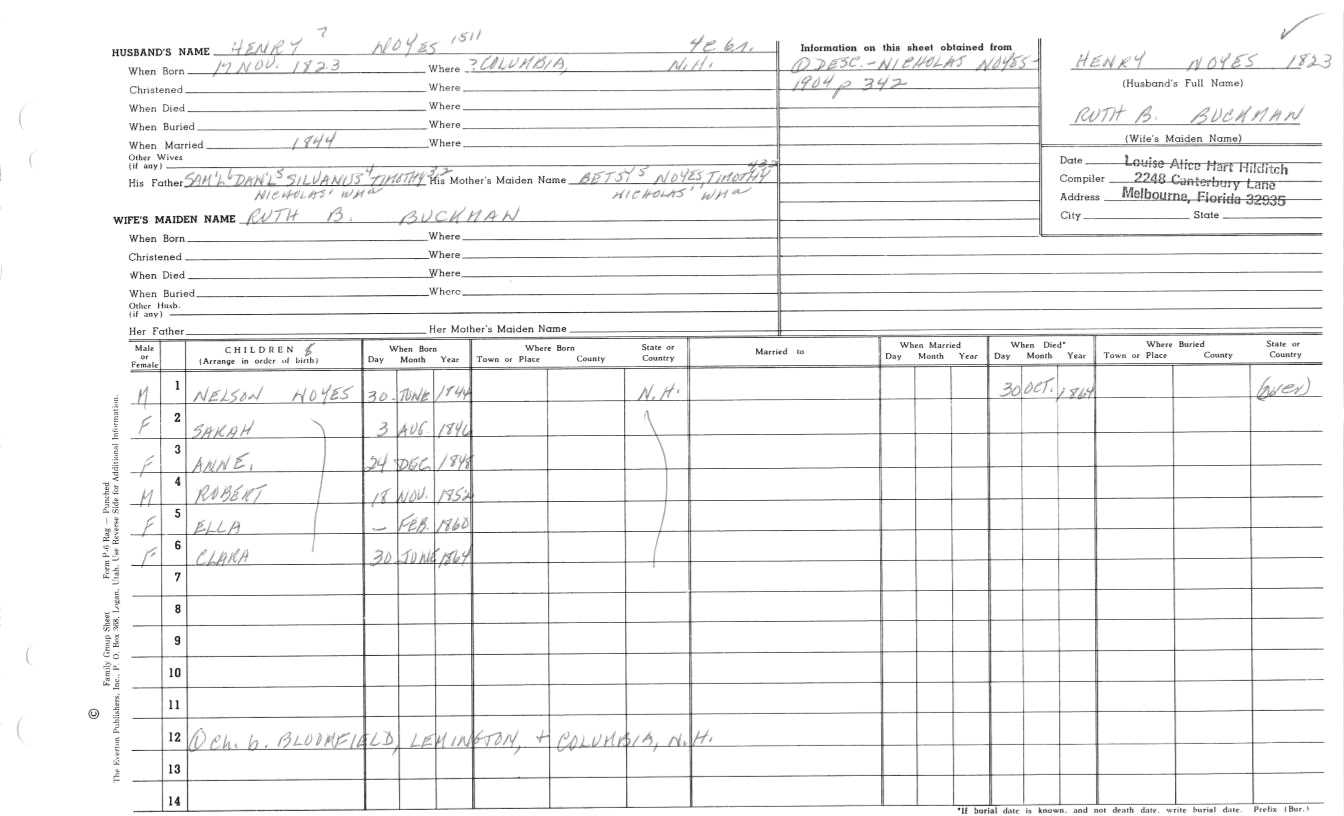 HUSBAND'S NAME HENRY 7 NOYES 1511 4 e 6 n.
When Born 17 NOV. 1823 Where ? COLUMBIA, N.H.
Christened Where
When Died Where
When Buried Where
When Married 1844 Where
Other Wives
(if any)
His Father SAM'L 6 DAN'L 5 SILVANUS 4 TIMOTHY 3,2 His Mother's Maiden Name BETSY 5 NOYES TIMOTHY 432
NICHOLAS' WMa NICHOLAS' WMa
WIFE'S MAIDEN NAME RUTH B. BUCKMAN
When Born Where
Christened Where
When Died Where
When Buried Where
Other Husb.
(if any)
Her Father Her Mother's Maiden Name
Information on this sheet obtained from
① DESC.-NICHOLAS NOYES-
1904 p 342
HENRY NOYES 1823
(Husband's Full Name)
RUTH B. BUCKMAN
(Wife's Maiden Name)
Date Louise Alice Hart Hilditch
Compiler 2248 Canterbury Lane
Address Melbourne, Florida 32935
City State
Male or Female CHILDREN 6 (Arrange in order of birth) When Born Day Month Year Where Born Town or Place County State or Country Married to When Married Day Month Year When Died* Day Month Year Where Buried Town or Place County State or Country
M 1 NELSON NOYES 30 JUNE 1844 N.H. 30 OCT. 1864 (over)
F 2 SARAH 3 AUG 1846
F 3 ANNE, 24 DEC 1848
M 4 ROBERT 18 NOV. 1852
F 5 ELLA - FEB. 1860
F 6 CLARA 30 JUNE 1864
7
8
9
10
11
12 ① Ch. b. BLOOMFIELD, LEMINGTON, + COLUMBIA, N.H.
13
14
*If burial date is known, and not death date, write burial date. Prefix (Bur.)
© Family Group Sheet Form P-6 Rag — Punched
The Everton Publishers, Inc., P. O. Box 368, Logan, Utah. Use Reverse Side for Additional Information.